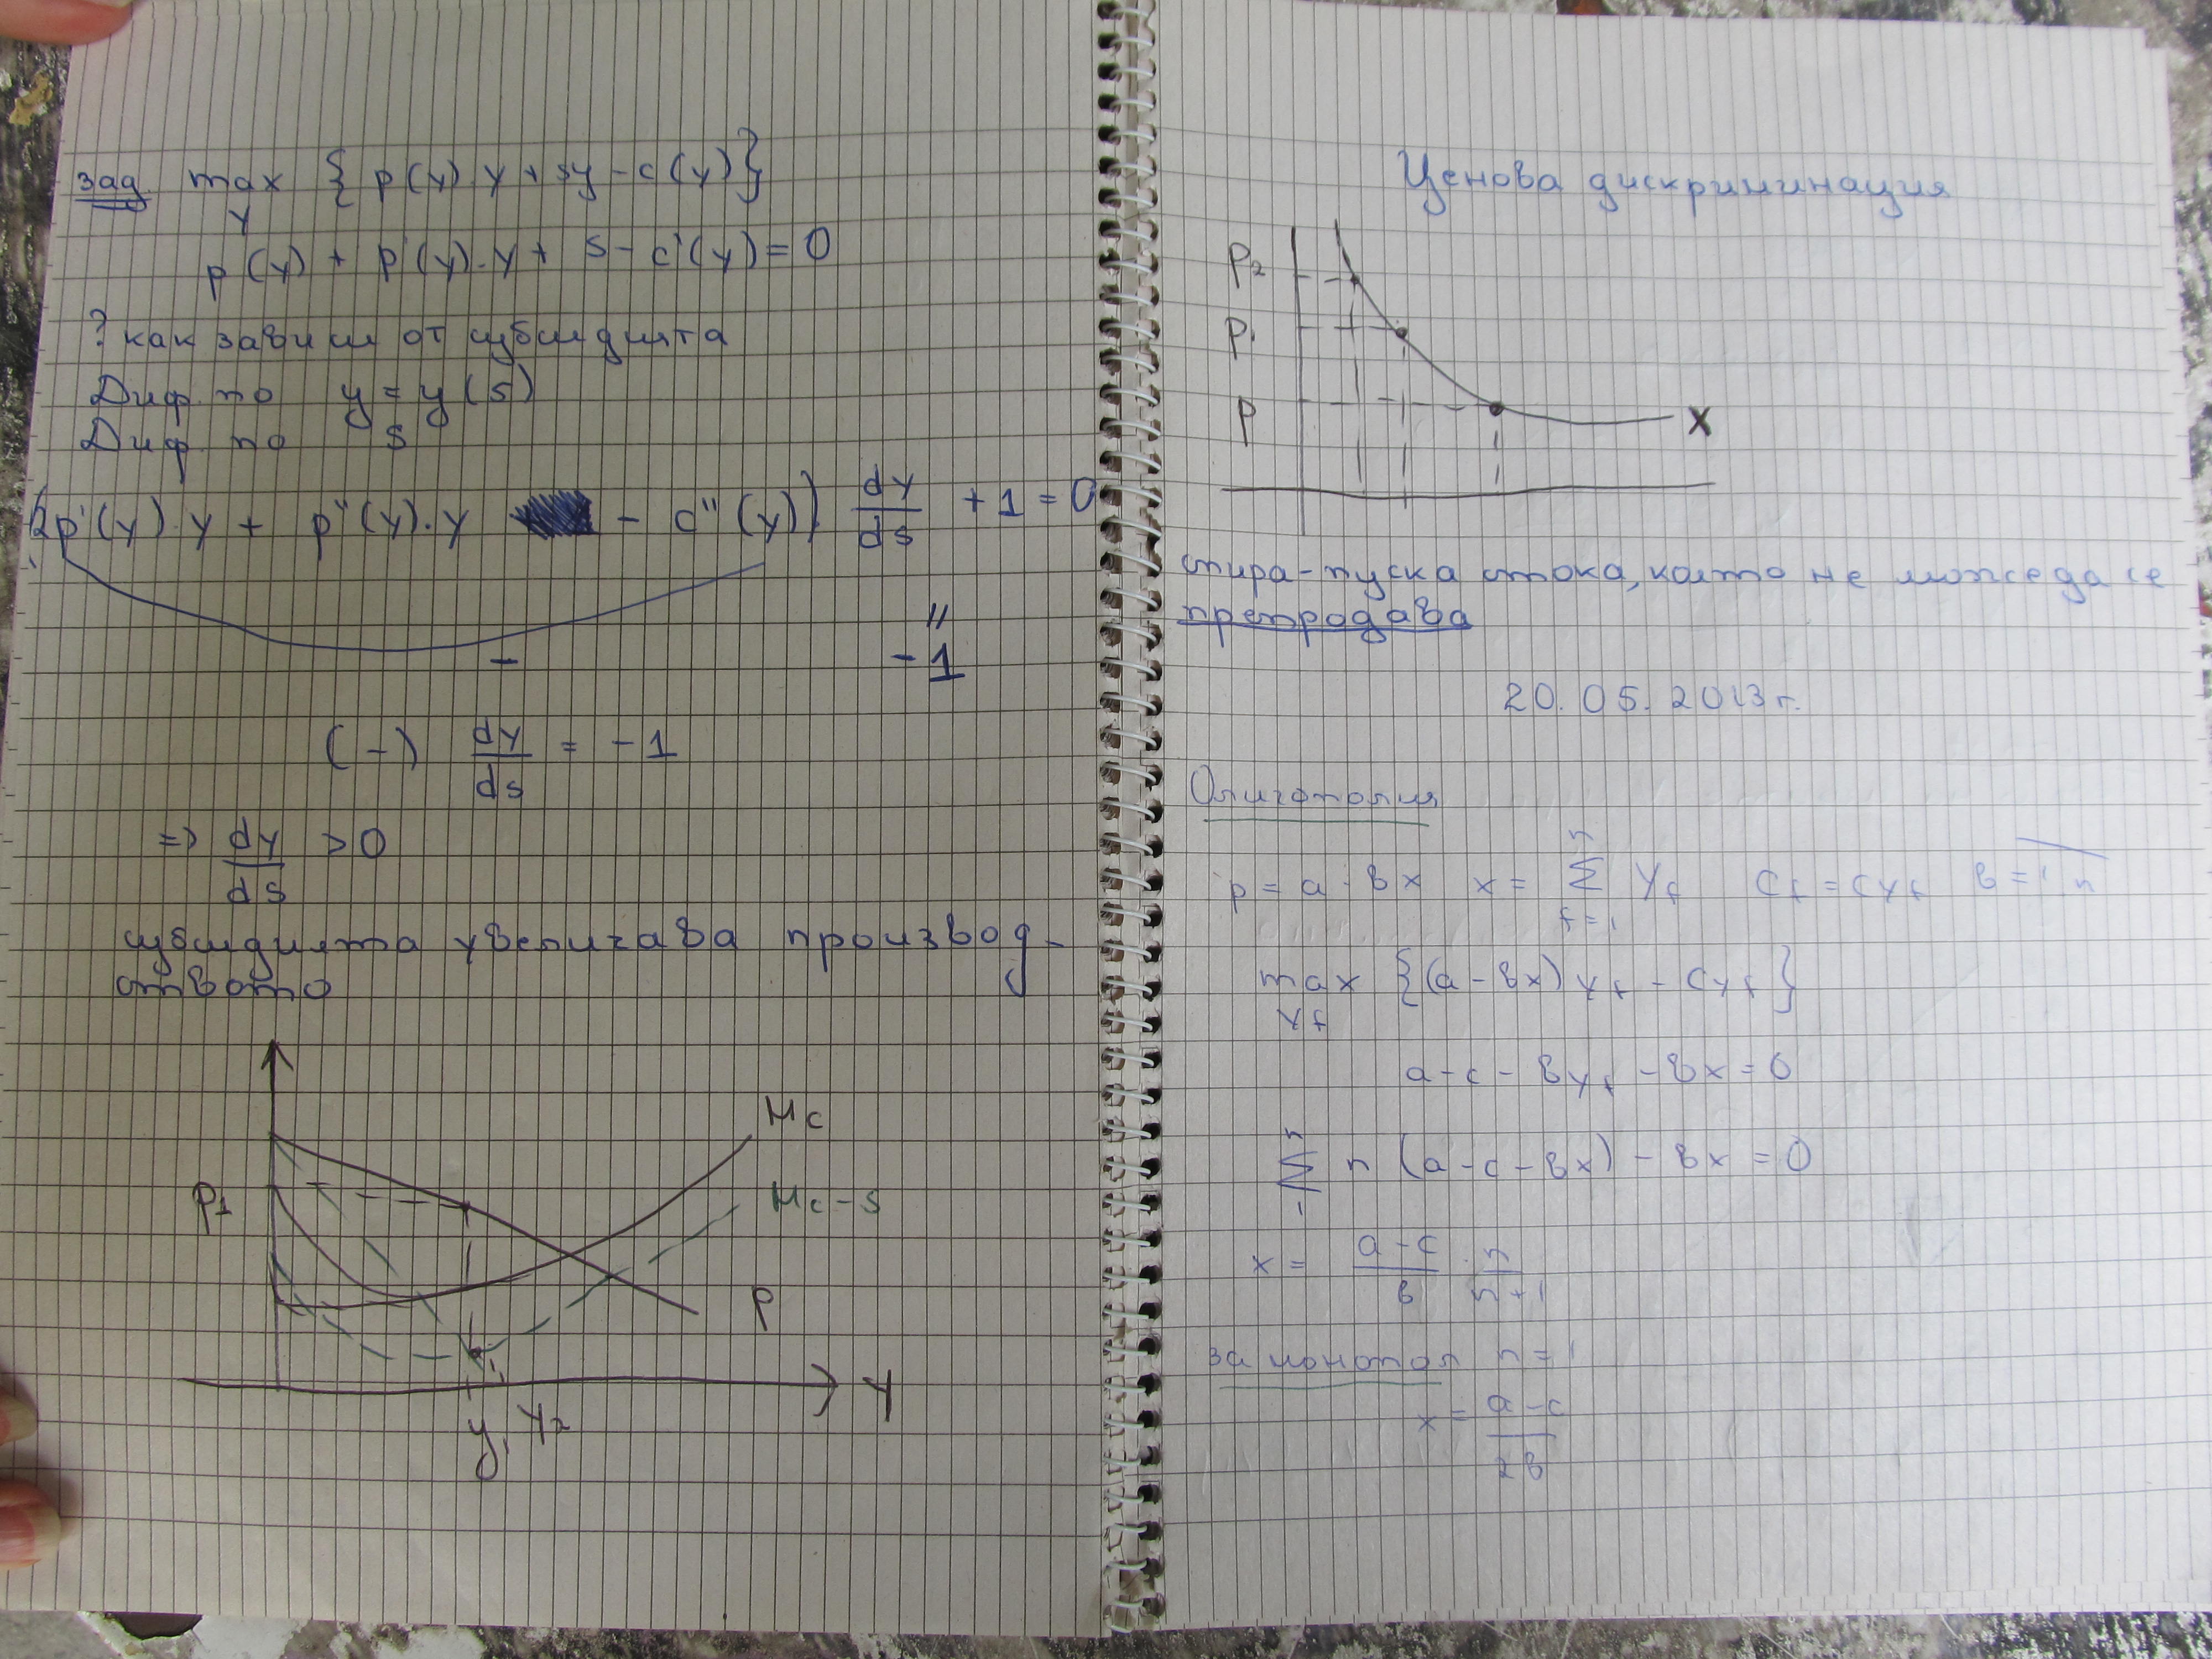 зад max { p(y).y + sy - c(y)}
y
p(y) + p'(y).y + s - c'(y) = 0
? как зависи от субсидията
Диф. по y = y(s)
Диф. по s
(2p'(y).y + p''(y).y - c''(y)) dy/ds + 1 = 0
-
"
-1
(-) dy/ds = -1
=> dy/ds > 0
субсидията увеличава производ-
ството
Mc
Mc-s
P1
P
y1 y2
y
Ценова дискриминация
P2
P1
P
X
спира-пуска стока, която не може да се
препродава
20.05.2013г.
Олигополия
p = a - вx x = n Σ f=1 yf Cf = cyf
max {(a - вx) yf - cyf}
yf
a - c - вyf - вx = 0
n Σ 1 n (a - c - вx) - вx = 0
x = a-c/в . n/n+1
за монопол n = 1
x = a-c/2в